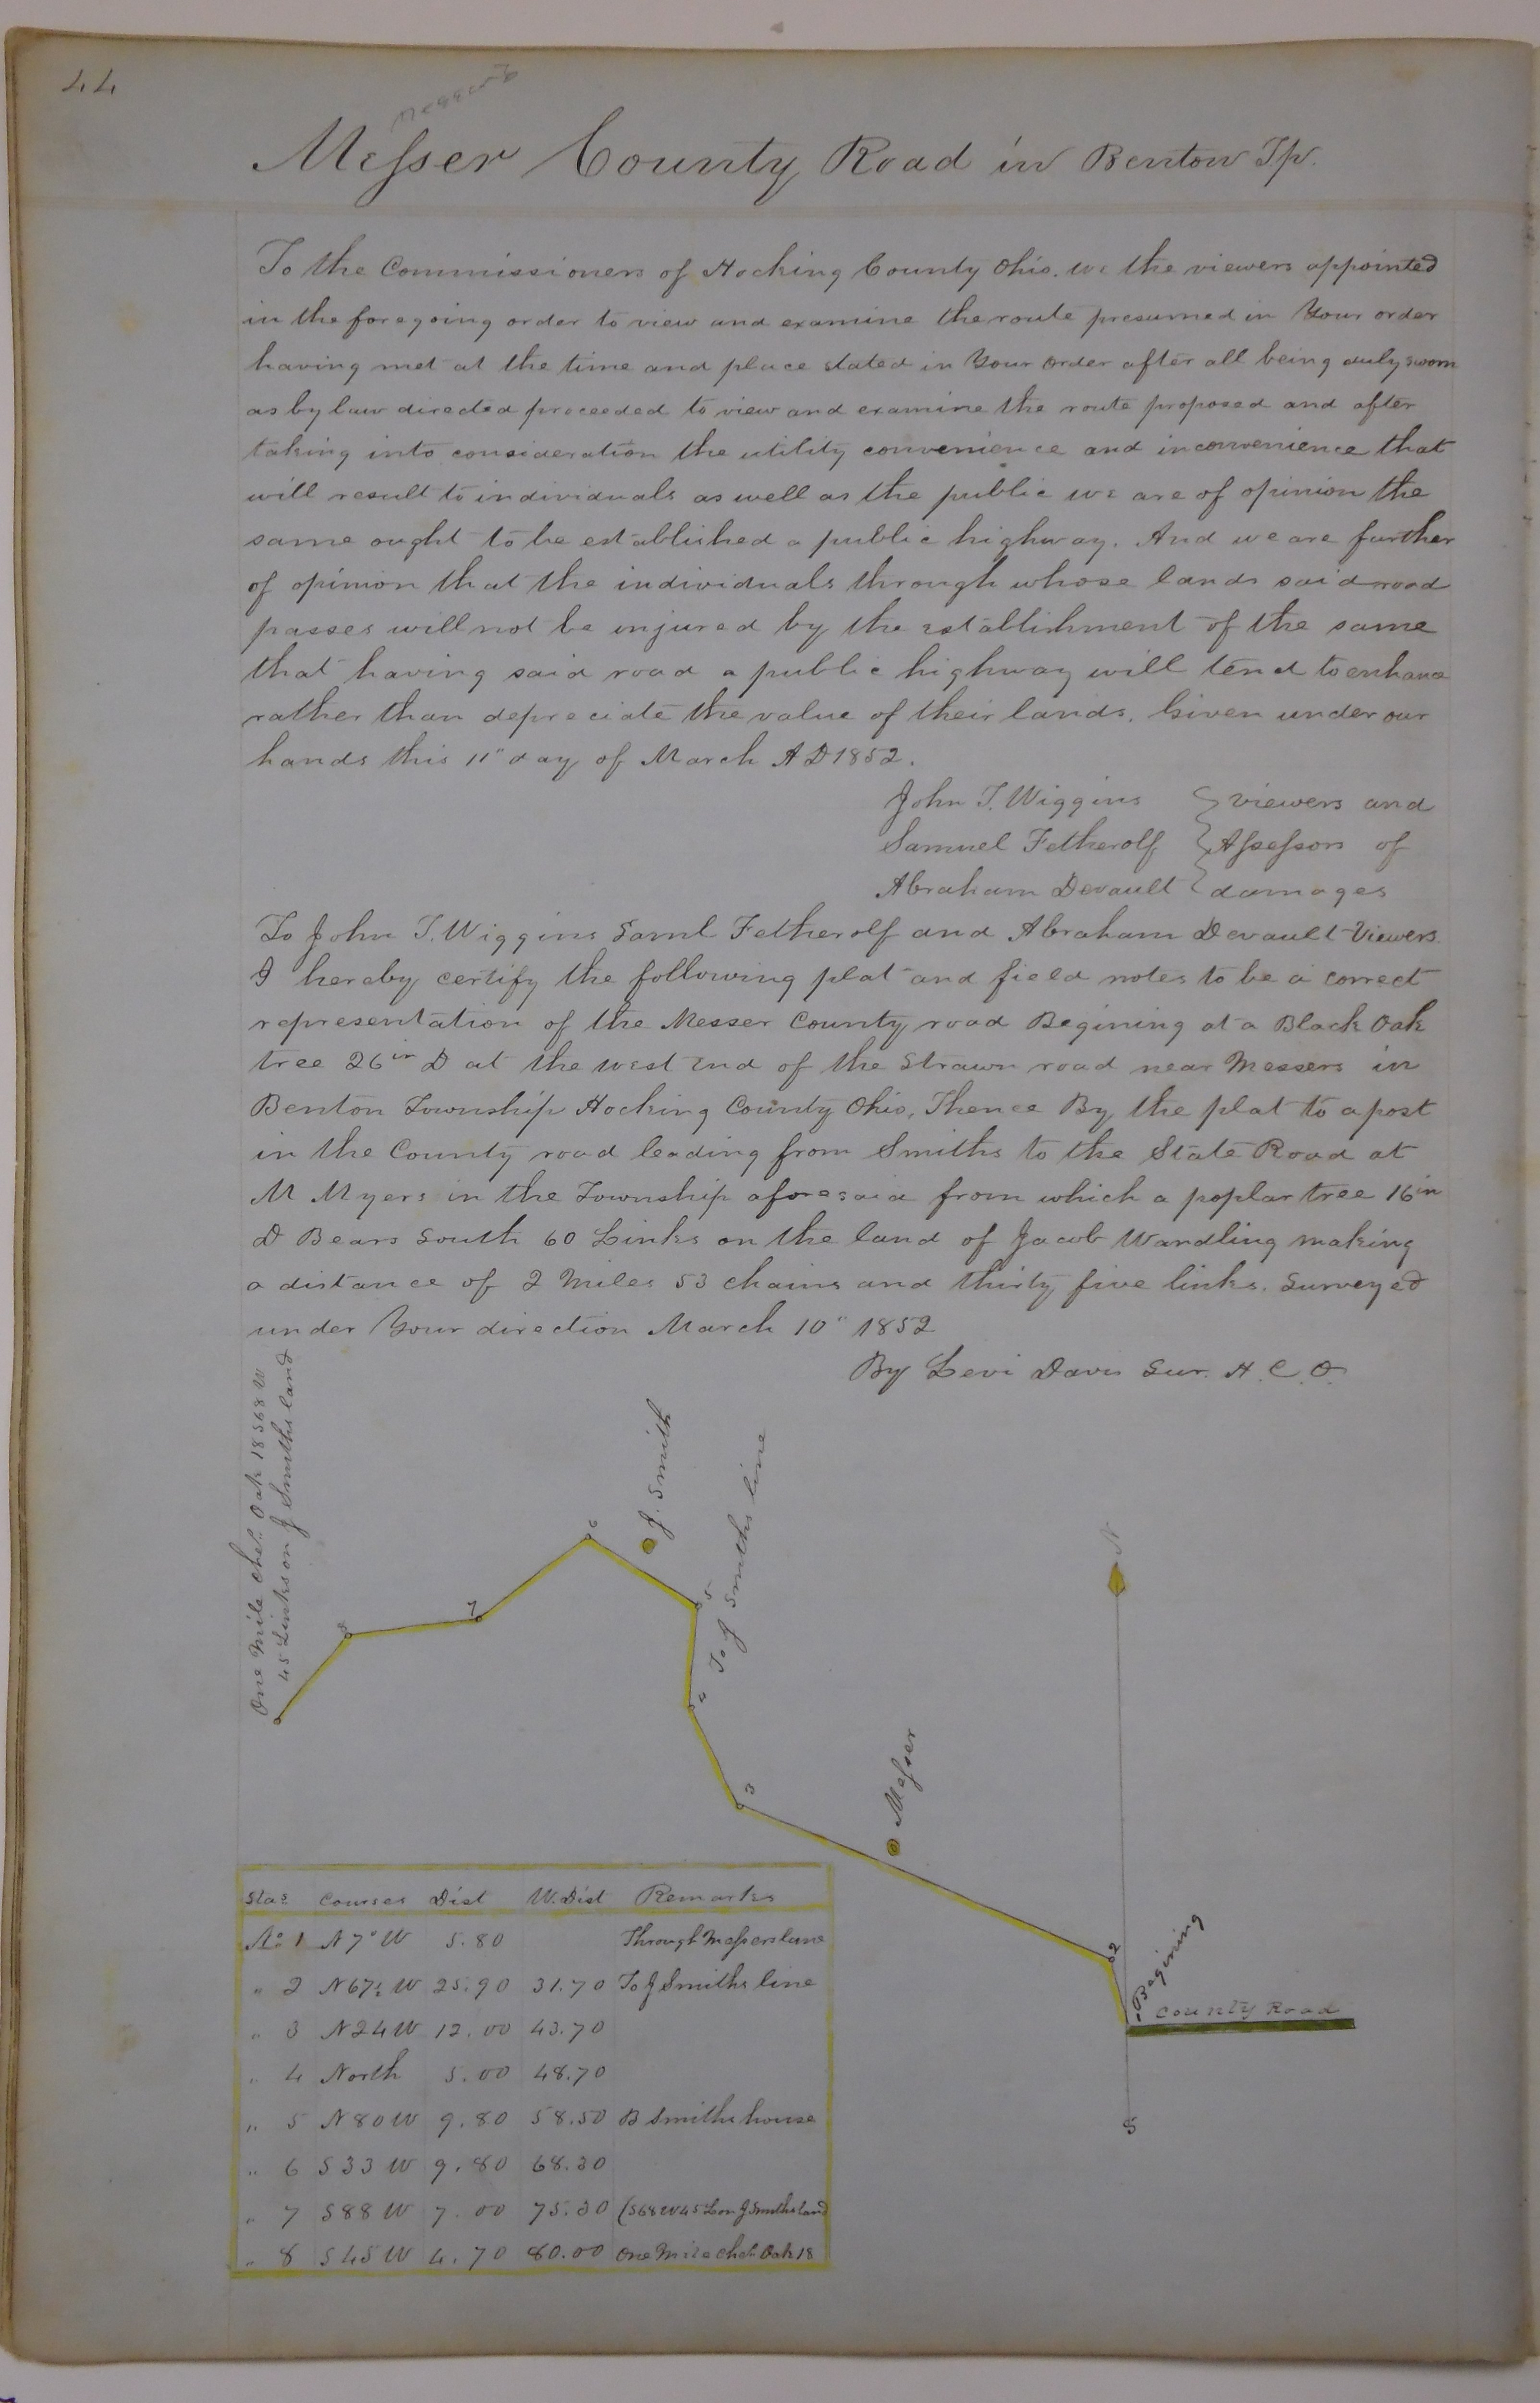 44
Messer
Messer County Road in Benton Tp.
To the Commissioners of Hocking County Ohio. We the viewers appointed
in the foregoing order to view and examine the route presumed in Your order
having met at the time and place stated in Your order after all being duly sworn
as by law directed proceeded to view and examine the route proposed and after
taking into consideration the utility convenience and inconvenience that
will result to individuals as well as the public we are of opinion the
same ought to be established a public highway. And we are further
of opinion that the individuals through whose lands said road
passes will not be injured by the establishment of the same
that having said road a public highway will tend to enhance
rather than depreciate the value of their lands. Given under our
hands this 11" day of March A D 1852.
John T. Wiggins } viewers and
Samuel Fetherolf } Assessors of
Abraham Devault } damages
To John T. Wiggins Saml Fetherolf and Abraham Devault Viewers
I hereby certify the following plat and field notes to be a correct
representation of the Messer County road Begining at a Black Oak
tree 26 in D at the west end of the Strawn road near Messers in
Benton Township Hocking County Ohio, Thence By the plat to a post
in the County road leading from Smiths to the State Road at
M Myers in the Township aforesaid from which a poplar tree 16 in
D Bears South 60 Links on the land of Jacob Wandling making
a distance of 2 Miles 53 chains and thirty five links. Surveyed
under Your direction March 10" 1852
By Levi Davis Sur. H. C. O.
One Mile chet. Oak 18 S68W
45 Links on J Smiths land
J. Smith
To J Smiths line
Messer
N
8
7
6
5
4
3
2
1
Begining
County Road
S
Stas Courses Dist W. Dist Remarks
No 1 N 7° W 5.80 Through Messers lane
" 2 N 67½ W 25.90 31.70 To J Smiths line
" 3 N 24 W 12.00 43.70
" 4 North 5.00 48.70
" 5 N 80 W 9.80 58.50 B Smiths house
" 6 S 33 W 9.80 68.30
" 7 S 88 W 7.00 75.30 (S68W 45 L on J Smiths land
" 8 S 45 W 4.70 80.00 One Mile Chet Oak 18